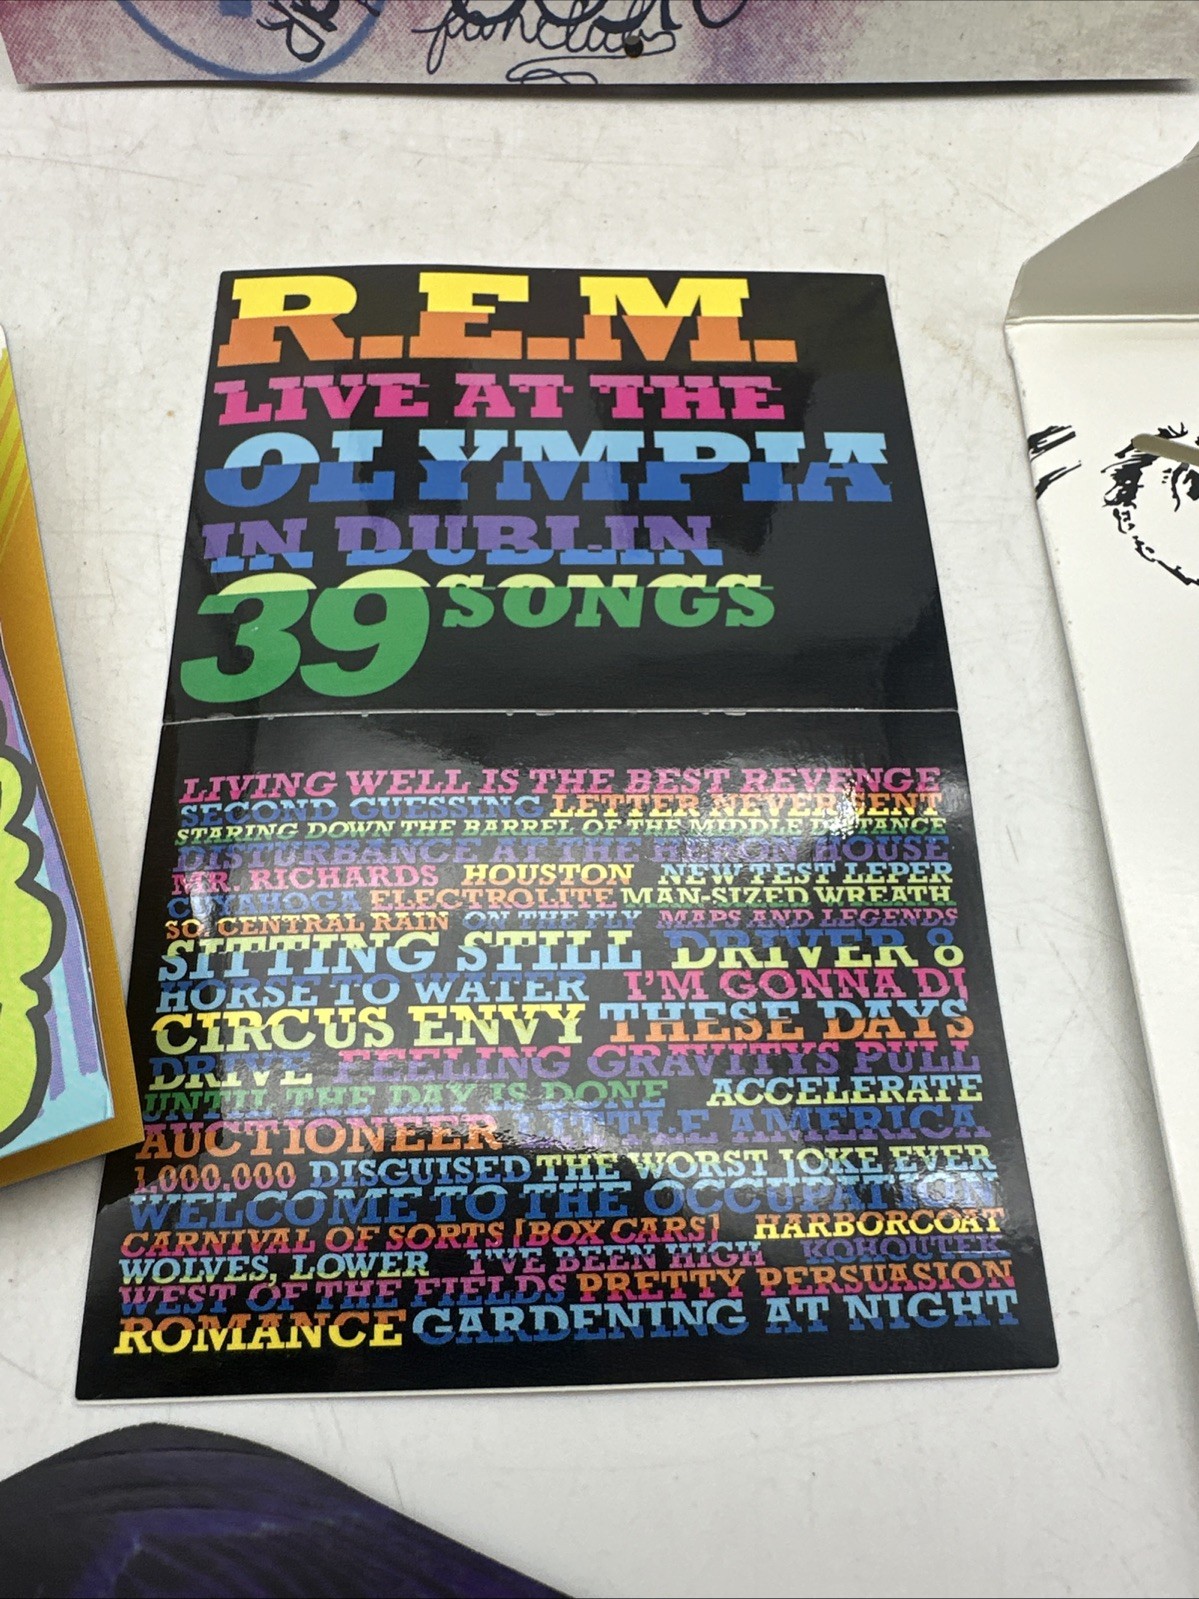 fanclub
R.E.M.
LIVE AT THE
OLYMPIA
IN DUBLIN
39 SONGS
LIVING WELL IS THE BEST REVENGE
SECOND GUESSING LETTER NEVER SENT
STARING DOWN THE BARREL OF THE MIDDLE DISTANCE
DISTURBANCE AT THE HERON HOUSE
MR. RICHARDS HOUSTON NEW TEST LEPER
CUYAHOGA ELECTROLITE MAN-SIZED WREATH
SO. CENTRAL RAIN ON THE FLY MAPS AND LEGENDS
SITTING STILL DRIVER 8
HORSE TO WATER I'M GONNA DJ
CIRCUS ENVY THESE DAYS
DRIVE FEELING GRAVITYS PULL
UNTIL THE DAY IS DONE ACCELERATE
AUCTIONEER LITTLE AMERICA
1,000,000 DISGUISED THE WORST JOKE EVER
WELCOME TO THE OCCUPATION
CARNIVAL OF SORTS [BOX CARS] HARBORCOAT
WOLVES, LOWER I'VE BEEN HIGH KOHOUTEK
WEST OF THE FIELDS PRETTY PERSUASION
ROMANCE GARDENING AT NIGHT